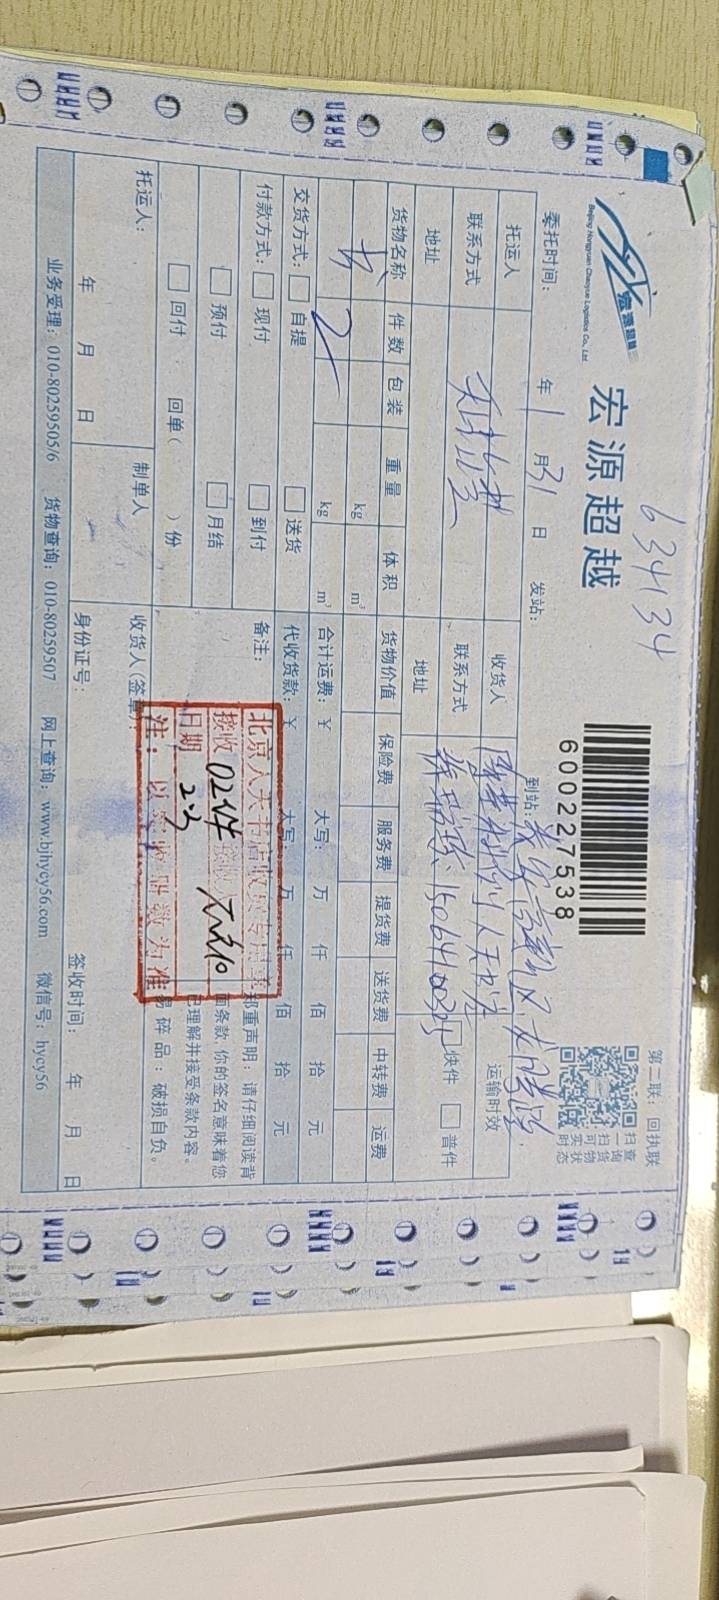 634134
宏源超越
Beijing Hongyuan Chaoyue Logistics Co., Ltd
宏源超越
600227538
第二联：回执联
扫一扫可实时
查询货物状态
委托时间： 年 1 月 31 日 发站： 到站：
托运人 收货人 运输时效
联系方式 联系方式 15064100 快件 普件
地址 地址
货物名称 件数 包装 重量 体积 货物价值 保险费 服务费 提货费 送货费 中转费 运费
书 2 kg m³
kg m³
交货方式： 自提 送货 合计运费：¥ 大写： 万 仟 佰 拾 元
付款方式： 现付 到付 代收货款：¥ 大写： 万 仟 佰 拾 元
预付 月结 备注：
回付 回单（ ）份
郑重声明：请仔细阅读背
面条款，你的签名意味着您
已理解并接受条款内容。
易碎品：破损自负。
北京人天书店收货专用章
接收 02件 接收人
日期 2.3
注：以实收册数为准
托运人： 年 月 日 制单人 收货人(签章)：
身份证号： 签收时间： 年 月 日
业务受理：010-80259505/6 货物查询：010-80259507 网上查询：www.bjhycy56.com 微信号：hycy56